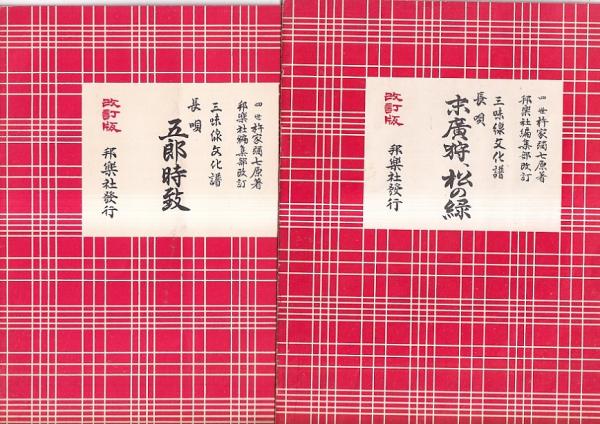 四世杵家彌七原著
邦樂社編集部改訂
三味線文化譜
長唄
五郎時致
邦樂社發行
改訂版
四世杵家彌七原著
邦樂社編集部改訂
三味線文化譜
長唄
末廣狩、松の緑
邦樂社發行
改訂版